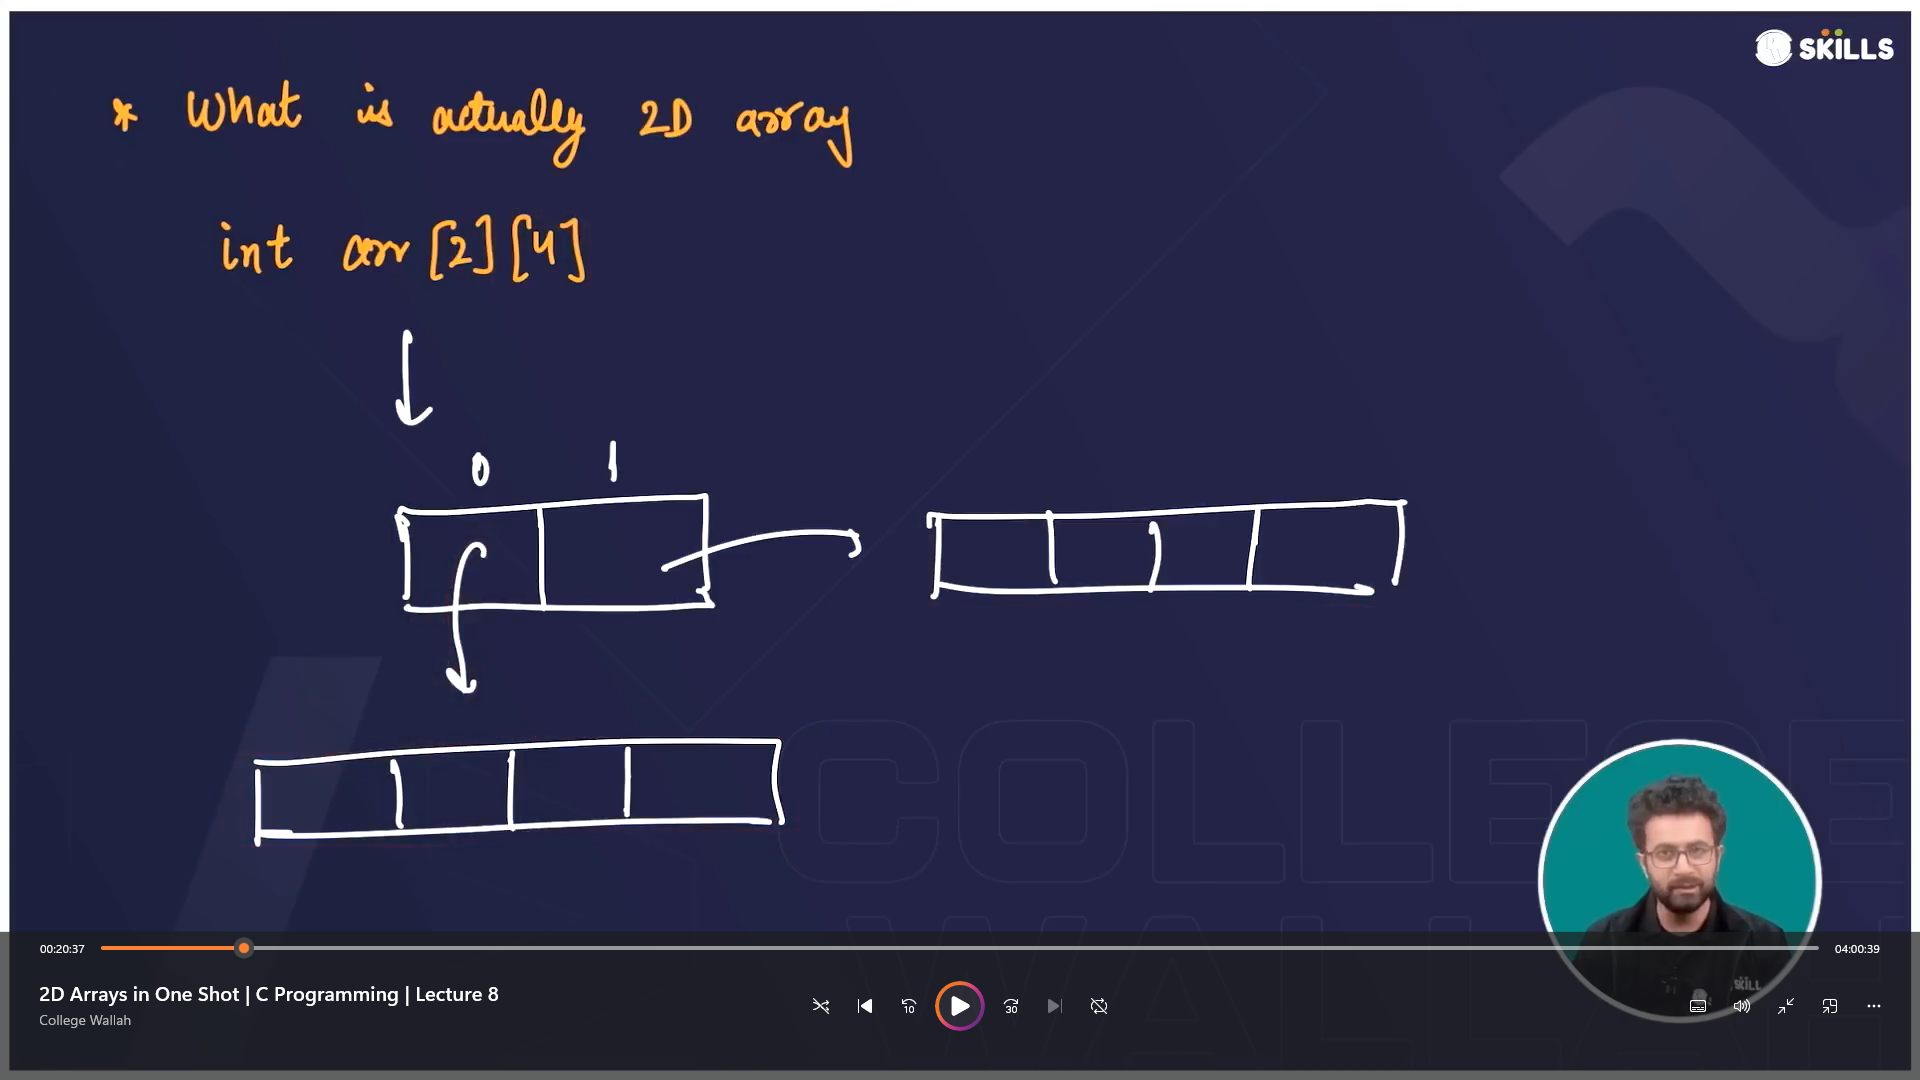 SKILLS
* What is actually 2D array
int arr [2][4]
0 1
COLLEGE
WALLAH
SKILL
00:20:37
04:00:39
2D Arrays in One Shot | C Programming | Lecture 8
College Wallah
10
30